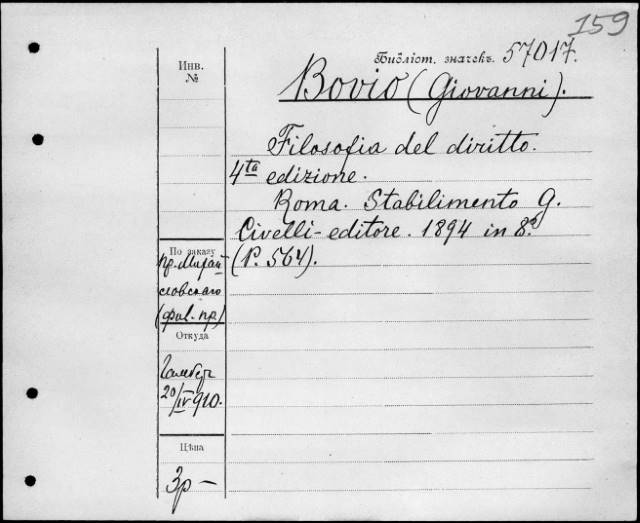 159
Библіот. значекъ. 57017.
Инв.
№
Bovio (Giovanni).
Filosofia del diritto.
4ta edizione.
Roma. Stabilimento G.
Civelli-editore. 1894 in 8º
(P. 564).
По заказу
пр.
(фил. пр.)
Откуда
20/IV 910.
Цѣна
3р —